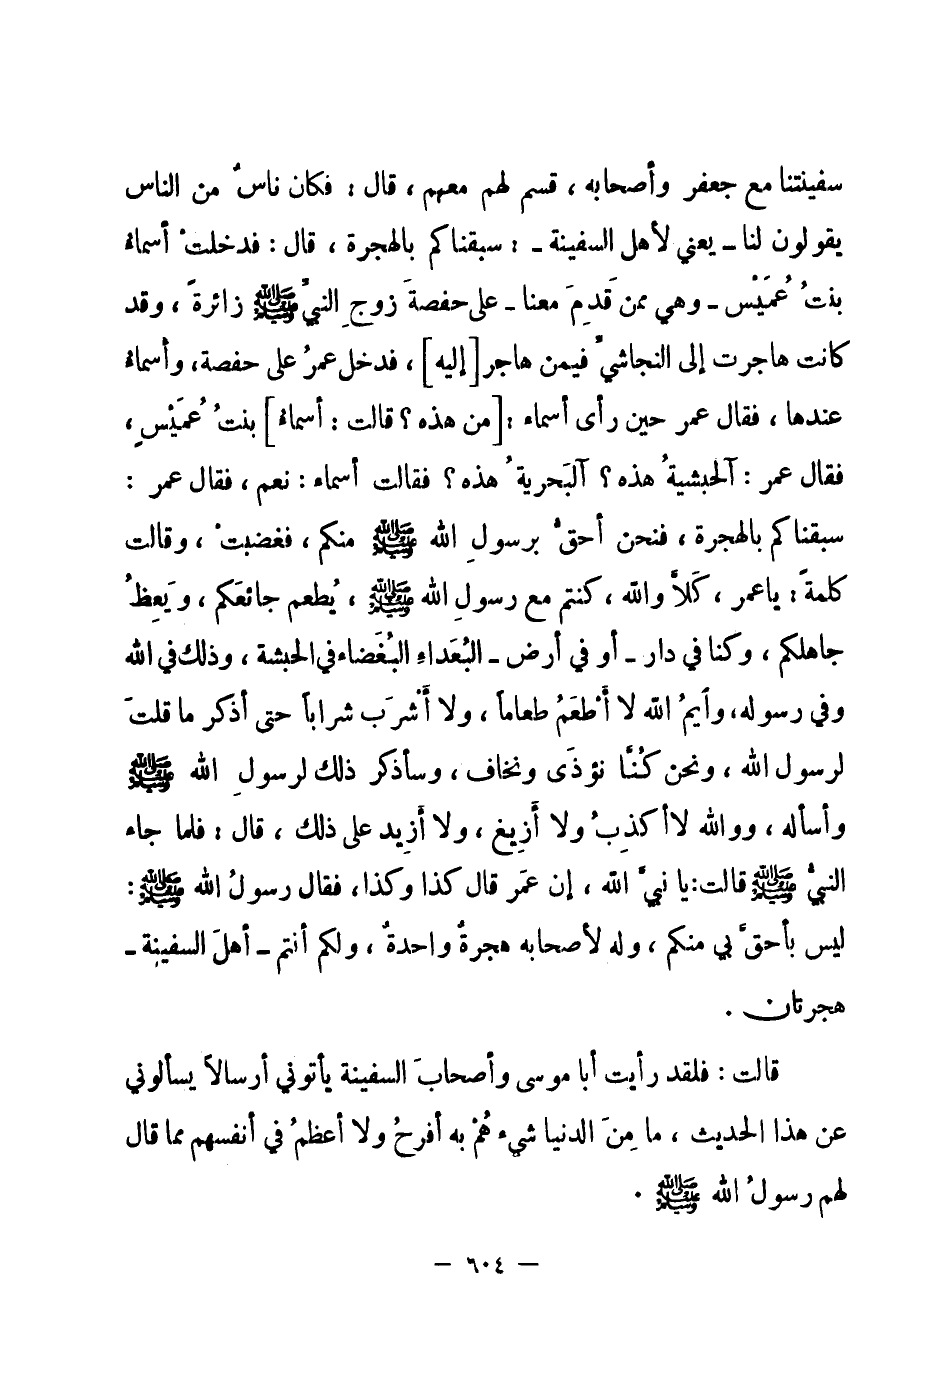 سفينتنا مع جعفر وأصحابه ، قسم لهم معهم ، قال : فكان ناسٌ من الناس
يقولون لنا ـ يعني لأهل السفينة ـ : سبقناكم بالهجرة ، قال : فدخلتْ أسماءُ
بنتُ عُمَيْس ـ وهي ممن قَدِمَ معنا ـ على حفصةَ زوجِ النبيِّ ﷺ زائرةً ، وقد
كانت هاجرت إلى النجاشيِّ فيمن هاجر [إليه] ، فدخل عمرُ على حفصة، وأسماءُ
عندها ، فقال عمر حين رأى أسماء : [من هذه ؟ قالت : أسماءُ] بنتُ عُمَيْسٍ ،
فقال عمر : آلحبشيةُ هذه ؟ آلبَحريةُ هذه ؟ فقالت أسماء : نعم ، فقال عمر :
سبقناكم بالهجرة ، فنحن أحقُّ برسولِ الله ﷺ منكم ، فغضبتْ ، وقالت
كلمةً : ياعمر ، كَلاَّ والله ، كنتم مع رسولِ الله ﷺ ، يُطعم جائعَكم ، ويَعِظُ
جاهلكم ، وكنا في دار ـ أو في أرض ـ البُعَداءِ البُغَضاء في الحبشة ، وذلك في الله
وفي رسوله، وأيمُ الله لا أَطْعَمُ طعاماً ، ولا أَشْرَب شراباً حتى أذكر ما قلتَ
لرسول الله ، ونحن كُنَّا نؤذَى ونخاف ، وسأذكر ذلك لرسولِ الله ﷺ
وأسأله ، ووالله لاأكذِبُ ولا أَزِيغ ، ولا أَزِيد على ذلك ، قال : فلما جاء
النبيُّ ﷺ قالت: يا نبيَّ الله ، إن عمَر قال كذا وكذا، فقال رسولُ الله ﷺ :
ليس بأحقَّ بي منكم ، وله لأصحابه هجرةٌ واحدةٌ ، ولكم أنتم ـ أهلَ السفينِة ـ
هجرتان .
قالت : فلقد رأيت أبا موسى وأصحابَ السفينة يأتوني أرسالاً يسألوني
عن هذا الحديث ، ما مِنَ الدنيا شيء هُمْ به أفرحُ ولا أعظمُ في أنفسهم مما قال
لهم رسولُ الله ﷺ .
— ٦٠٤ —